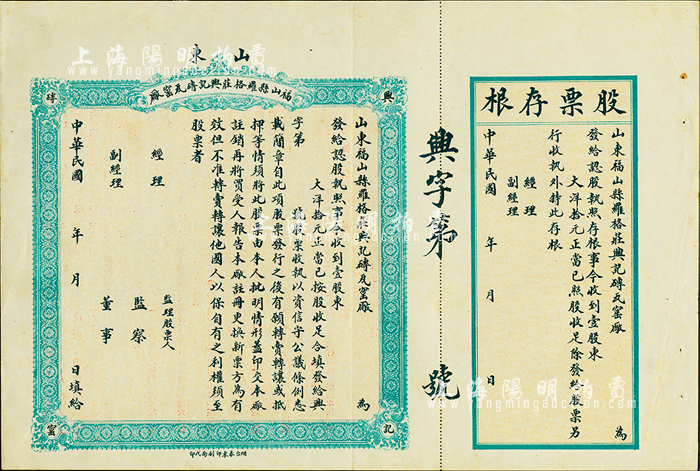 股票存根
山東福山縣羅格莊興記磚瓦窰廠　為
發給認股執照存根事今收到壹股東
大洋拾元正當已照股收足除發給股票另
行收執外特此存根
經理
副經理
中華民國　年　月　日
興字第　號
山東
福山縣羅格莊興記磚瓦窰廠
興
記
磚
窰
山東福山縣羅格莊興記磚瓦窰廠　為
發給認股執照事今收到壹股東
大洋拾元正當已按股收足合填發給興
字第　號股票收執以資信守公議條例悉
載簡章自此項股票發行之後有願轉賣轉讓或抵
押等情須將此股票由本人批明情形蓋印交本廠
註銷再將買受人報告本廠註冊更換新票方為有
效但不准轉賣轉讓他國人以保自有之利權須至
股票者
監理股票人
經理　監察
副經理　董事
中華民國　年　月　日填給
烟台泰東印刷局代印
上海陽明拍賣
www.yangmingauction.com
上海陽明拍賣
www.yangmingauction.com